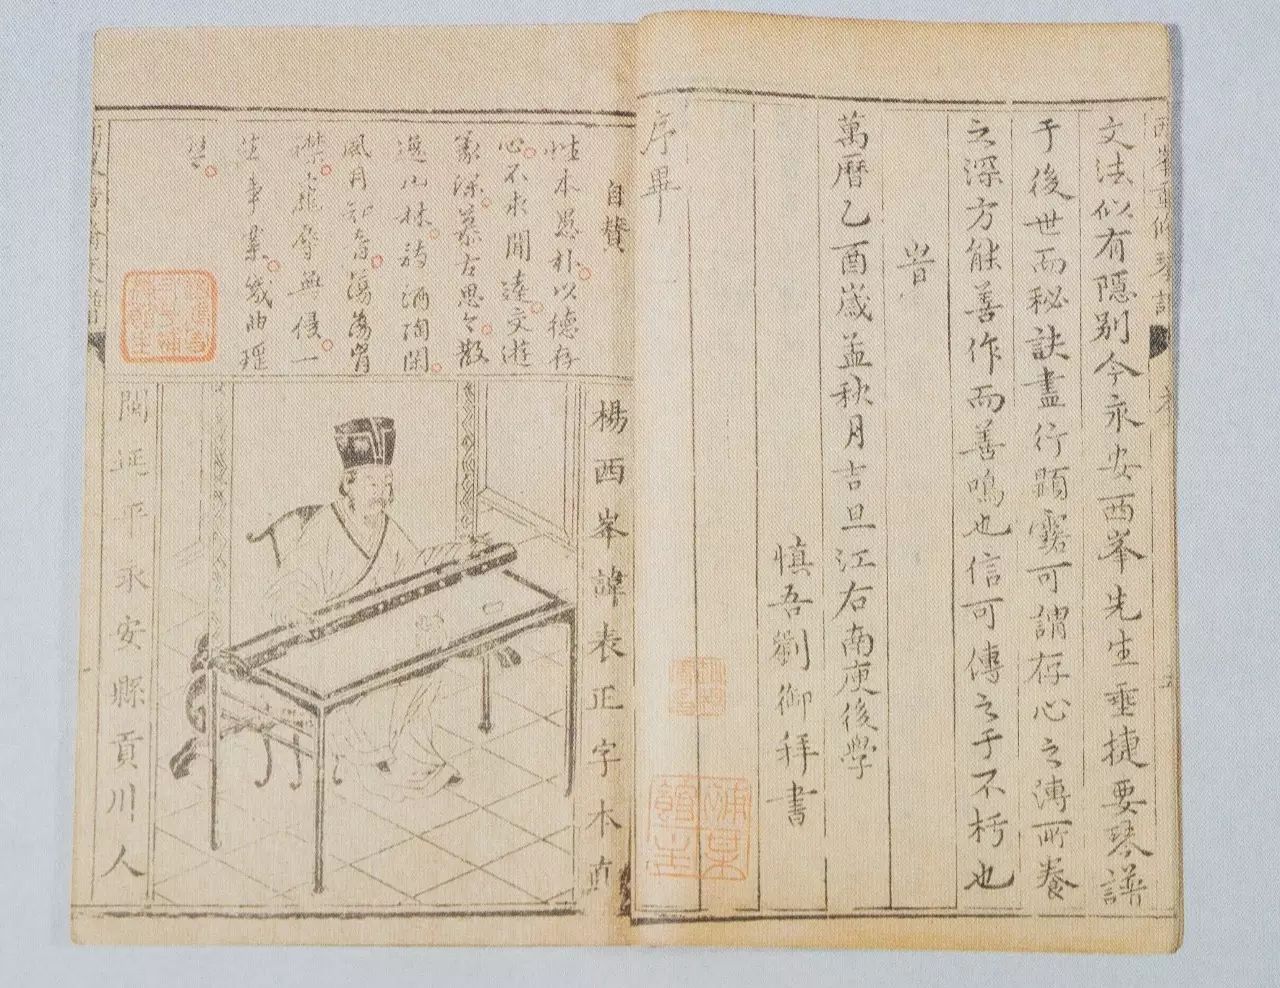 文法似有隱别今永安西峯先生垂捷要琴譜
于後世而秘訣盡行顯露可謂存心之溥所養
之深方能善作而善鳴也信可傳之于不朽也
旹
萬曆乙酉歲孟秋月吉旦江右南庾後學
慎吾劉御拜書
序畢
自贊
性本愚朴以德存
心不求聞達交遊
義深慕古思今散
逸山林詩酒陶閑
風月知音蕩蕩胷
襟寵辱無侵一
生事業幾曲瑶
琴
楊西峯諱表正字本直
閩延平永安縣貢川人